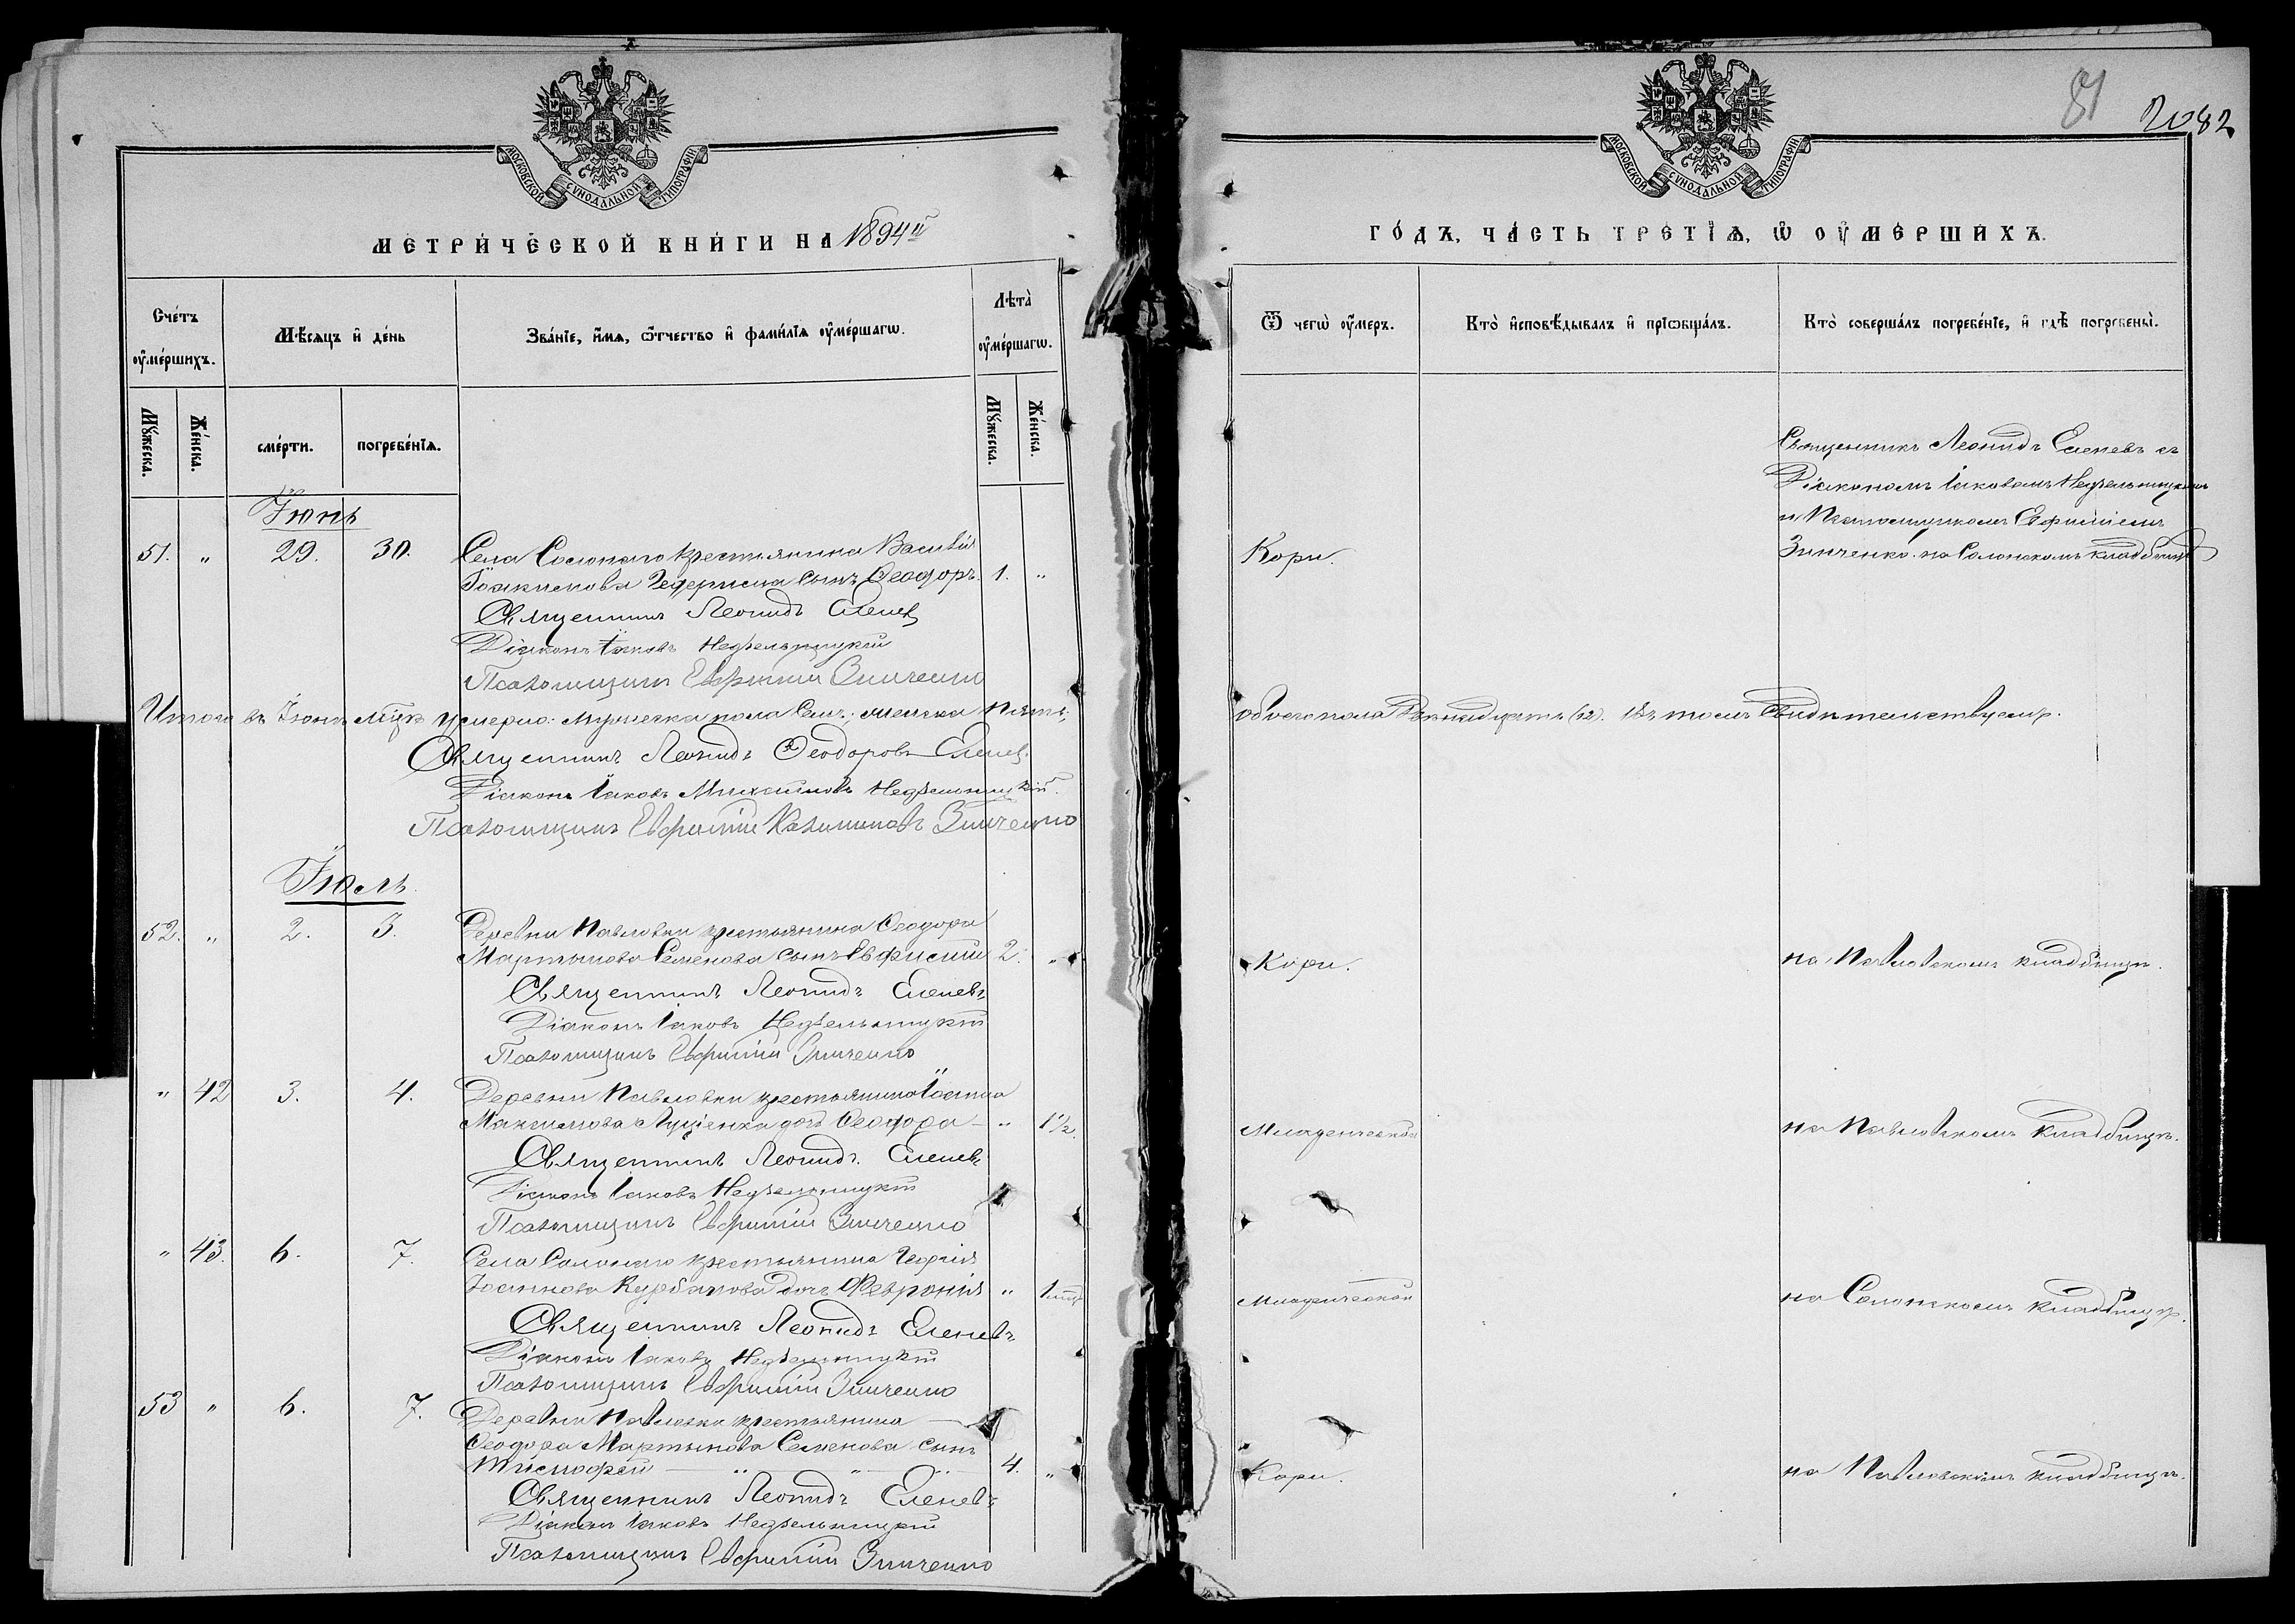 МОСКОВСКОЙ СѴНОДАЛЬНОЙ ТИПОГРАФІИ
МЕТРИ́ЧЕСКОЙ КНИ́ГИ НА 1894й
Сче́тъ ᲂу҆ме́ршихъ.
Мѣ́сяцъ и҆ де́нь
Зва́нїе, и҆́мѧ, ѻ҆́тчество и҆ фами́лїѧ ᲂу҆ме́ршагѡ.
Лѣта̀ ᲂу҆ме́ршагѡ.
Мꙋ́жеска.
Же́нска.
сме́рти.
погребе́нїѧ.
Мꙋ́жеска.
Же́нска.
Іюнь
51. " 29. 30. Села крестьянина Василія
Іоакимова сынъ Ѳеодоръ. 1. "
Священникъ Леонидъ Еленевъ
Діаконъ Іаковъ Недзельницкій
Псаломщикъ Евфимій Зинченко
Итого въ Іюнѣ мцѣ умерло: мужеска пола семь, женска пять,
Священникъ Леонидъ Ѳеодоровъ Еленевъ
Діаконъ Іаковъ Михаиловъ Недзельницкій.
Псаломщикъ Евфимій Зинченко
Іюль
52. " 2. 3. Деревни Павловки крестьянина Ѳеодора
Мартынова Семенова сынъ Евфимій 2. "
Священникъ Леонидъ Еленевъ
Діаконъ Іаковъ Недзельницкій
Псаломщикъ Евфимій Зинченко
" 42 3. 4. Деревни Павловки крестьянина Іоанна
Максимова Луценка дочь Ѳеодора " 1½.
Священникъ Леонидъ Еленевъ
Діаконъ Іаковъ Недзельницкій
Псаломщикъ Евфимій Зинченко
" 43. 6. 7. Села Солонаго крестьянина Георгія
Іоаннова Курбатова дочь Февронія " 1
Священникъ Леонидъ Еленевъ
Діаконъ Іаковъ Недзельницкій
Псаломщикъ Евфимій Зинченко
53 " 6. 7. Деревни Павловки крестьянина
Ѳеодора Мартынова Семенова сынъ
Тимофей 4. "
Священникъ Леонидъ Еленевъ
Діаконъ Іаковъ Недзельницкій
Псаломщикъ Евфимій Зинченко
81 2082
МОСКОВСКОЙ СѴНОДАЛЬНОЙ ТИПОГРАФІИ
ГО́ДЪ, ЧА́СТЬ ТРЕ́ТЇѦ, Ѡ҆ ОУ҆МЕ́РШИХЪ.
Ѿ чегѡ̀ ᲂу҆́меръ.
Кто̀ и҆сповѣ́дывалъ и҆ прїѡбща́лъ.
Кто̀ соверша́лъ погребе́нїе, и҆ гдѣ̀ погребены̀.
Священникъ Леонидъ Еленевъ съ
Діакономъ Іаковомъ Недзельницкимъ
и Псаломщикомъ Евфиміемъ
Кори. Зинченко. на Солонскомъ кладбищѣ
обоего пола двѣнадцать (12). Въ томъ свидѣтельствуемъ.
Кори. на Павловскомъ кладбищѣ.
Младенческой на Павловскомъ кладбищѣ.
Младенческой на Солонскомъ кладбищѣ.
Кори. на Павловскомъ кладбищѣ.